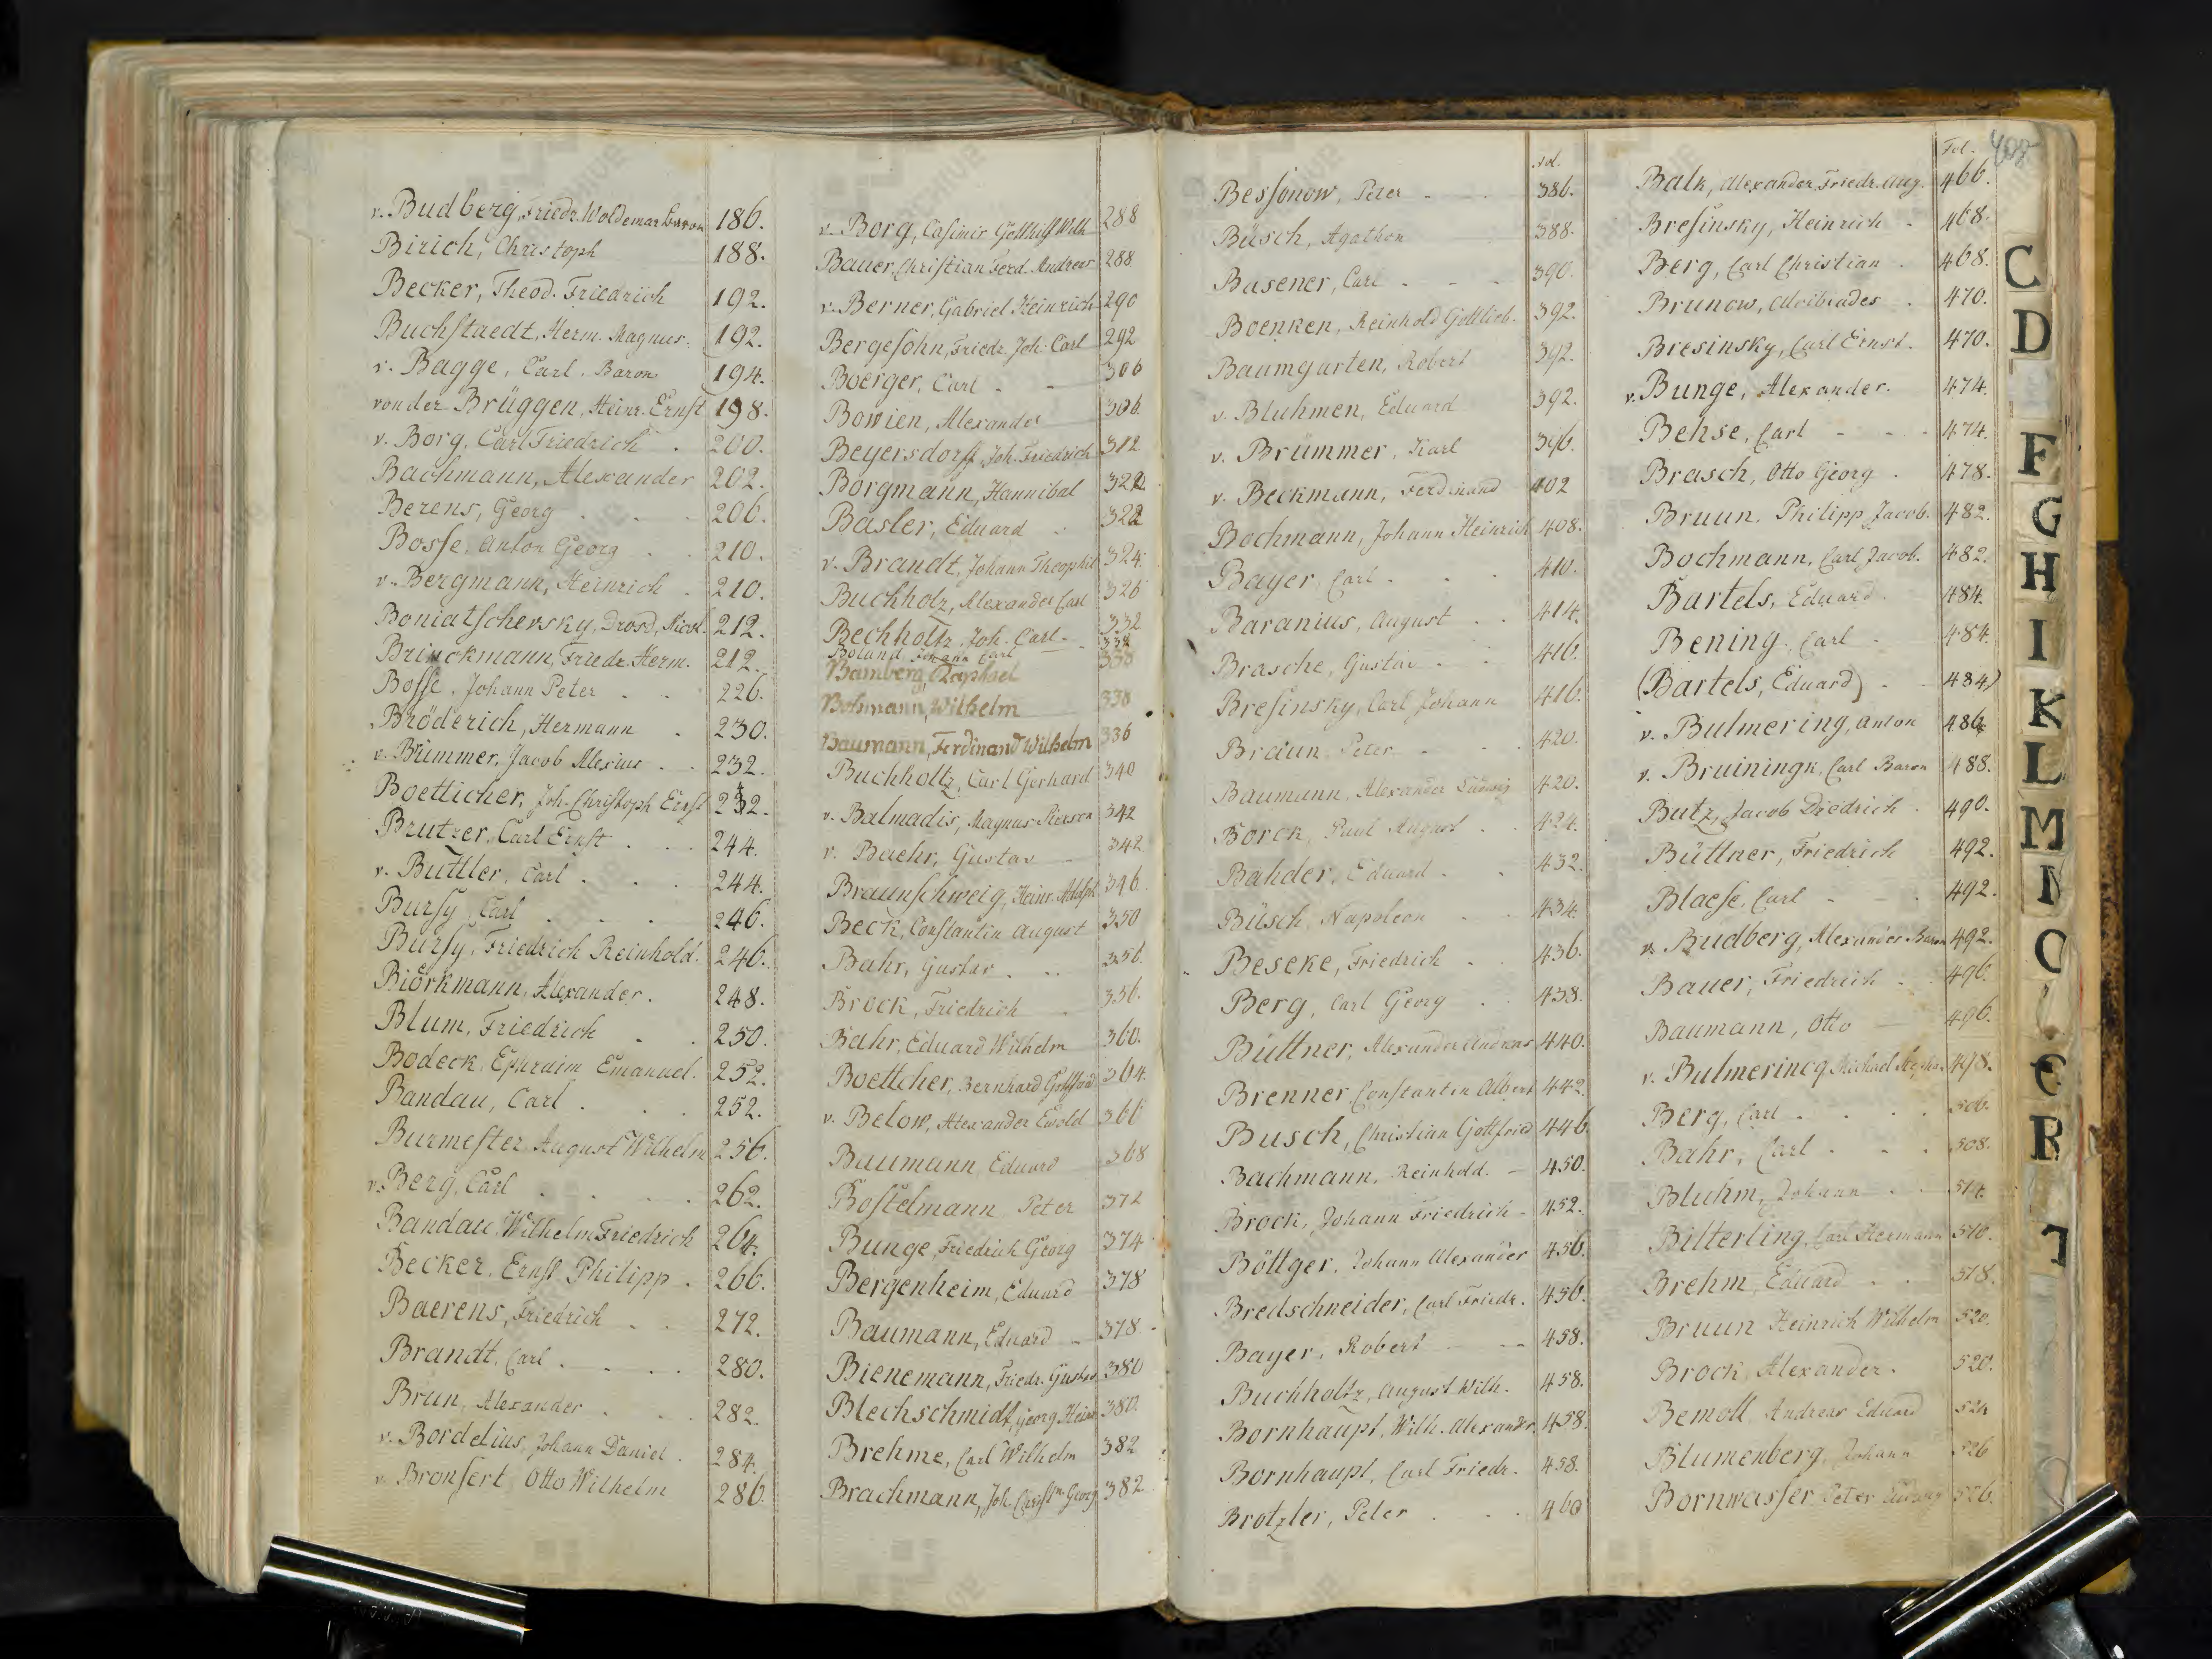 v. Budberg, Friedr. Woldemar Baron 186.
Birich, Christoph 188.
Becker, Theod. Friedrich 192.
Buchſtaedt, Herm. Magnus. 192.
v. Bagge, Carl. Baron 194.
von der Brüggen, Heinr. Ernſt 198.
v. Borg, Carl Friedrich . 200.
Bachmann, Alexander 202.
Berens, Georg . . . 206.
Boſse, Anton Georg . . 210.
v. Bergmann, Heinrich . 210.
Boniatſchevsky, Drosd, 212.
Brinckmann, Friedr. Herm. 212.
Boſse, Johann Peter . . 226.
Bröderich, Hermann . 230.
v. Brümmer, Jacob Alexius . . 232.
Boetticher, Joh. Chriſtoph Ernſt 232.
Brutzer, Carl Ernſt . . . 244.
v. Buttler, Carl . . . 244.
Burſy, Carl . . . 246.
Burſy, Friedrich Reinhold. 246.
Biörkmann, Alexander. 248.
Blum, Friedrich . . 250.
Bodeck, Ephraim Emanuel. 252.
Bandau, Carl . . . 252.
Burmeſter, August Wilhelm 256.
v. Berg, Carl . . . 262.
Bandau, Wilhelm Friedrich 264.
Becker, Ernſt Philipp . 266.
Baerens, Friedrich . . 272.
Brandt, Carl . . . . 280.
Brun, Alexander . . . 282.
v. Bordelius, Johann Daniel . 284.
v. Bronſert Otto Wilhelm 286.
v. Borg, Caſimir Gotthilf Wilh 288
Bauer, Chriſtian Ferd. Andreas 288
v. Berner, Gabriel Heinrich 290
Bergeſohn, Friedr. Joh. Carl 292
Boerger, Carl - - 306
Bowien, Alexander 306
Beyersdorff, Joh. Friedrich 312
Borgmann, Hannibal 322
Basler, Eduard . 322
v. Brandt, Johann Theophil 324
Buchholz, Alexander Carl 326
Bechholtz, Joh. Carl. 332
Boland, Johann Carl 332
Bamberg, Raphael 338
Bohmann, Wilhelm 338
Baumann, Ferdinand Wilhelm 336
Buchholtz, Carl Gerhard 340
v. Balmadis, Magnus 342
v. Baehr, Gustav 342
Braunſchweig, Heinr. Adolph 346
Beck, Conſtantin August 350
Bahr, Gustav . .. 356.
Brock, Friedrich . 356.
Bahr, Eduard Wilhelm 360.
Boettcher, Bernhard Gottfried 364.
v. Below, Alexander Ewald 366
Baumann, Eduard 368
Boſtelmann Peter 372
Bunge, Friedrich Georg 374
Bergenheim, Eduard 378
Baumann, Eduard - 378
Bienemann, Friedr. Gustav 380
Blechschmidt, Georg Heinr. 380.
Brehme, Carl Wilhelm 382
Brachmann, Joh. Chriſtn. Georg 382
Fol.
Beſsonow, Peter . . 386.
Büsch, Agathon 388.
Basener, Carl . - - 390.
Boenken, Reinhold Gottlieb. 392.
Baumgarten, Robert 392.
v. Bluhmen, Eduard 392.
v. Brümmer, Karl 396.
v. Beckmann, Ferdinand 402
Bochmann, Johann Heinrich 408.
Bayer Carl . . . 410.
Baranius, August . . 414.
Brasche, Gustav . . 416.
Breſinsky, Carl Johann 416.
Braun Peter . . . 420.
Baumann, Alexander Ludwig 420.
Borck, Paul August . . 424.
Bahder, Eduard . . 432.
Büsch, Napoleon . . 434.
Beseke, Friedrich . . 436.
Berg, Carl Georg . . 438.
Büttner, Alexander Andreas 440.
Brenner, Conſtantin Albert 442.
Busch, Christian Gottfried 446.
Bachmann, Reinhold. - 450.
Brock, Johann Friedrich . 452.
Böttger, Johann Alexander 456.
Bredschneider, Carl Friedr. 456.
Bayer, Robert - - 458.
Buchholtz, August Wilh. 458.
Bornhaupt, Wilh. Alexander. 458.
Bornhaupt, Carl Friedr. 458.
Brotzler, Peter . . . 460
Fol. 408
Balk, Alexander Friedr. Aug. 466.
Breſinsky, Heinrich . 468.
Berg, Carl Christian . 468.
Brunow, Alcibiades . 470.
Bresinsky, Carl Ernst. 470.
v. Bunge, Alexander. 474.
Behse, Carl - - - 474.
Brasch, Otto Georg . 478.
Bruun, Philipp Jacob. 482.
Bochmann, Carl Jacob. 482.
Bartels, Eduard. 484.
Bening, Carl . 484.
(Bartels, Eduard) . . 484)
v. Bulmering, Anton 486
v. Bruiningk, Carl Baron 488.
Butz, Jacob Diedrich . 490.
Büttner, Friedrich 492.
Blaeſe, Carl - - . 492.
v. Budberg, Alexander Baron 492.
Bauer, Friedrich . . 496.
Baumann, Otto 496.
v. Bulmerincq Michael 498.
Berg, Carl . . . . 506.
Bahr, Carl . . . 508.
Bluhm, Johann . . 514.
Bitterling, Carl Hermann 510.
Brehm, Eduard . . 518.
Bruun Heinrich Wilhelm 520.
Brock, Alexander. 520.
Bemoll, Andreas Eduard 524
Blumenberg, Johann 526
Bornwaſser, Peter Ludwig 526.
C
D
F
G
H
I
K
L
M
N
O
R